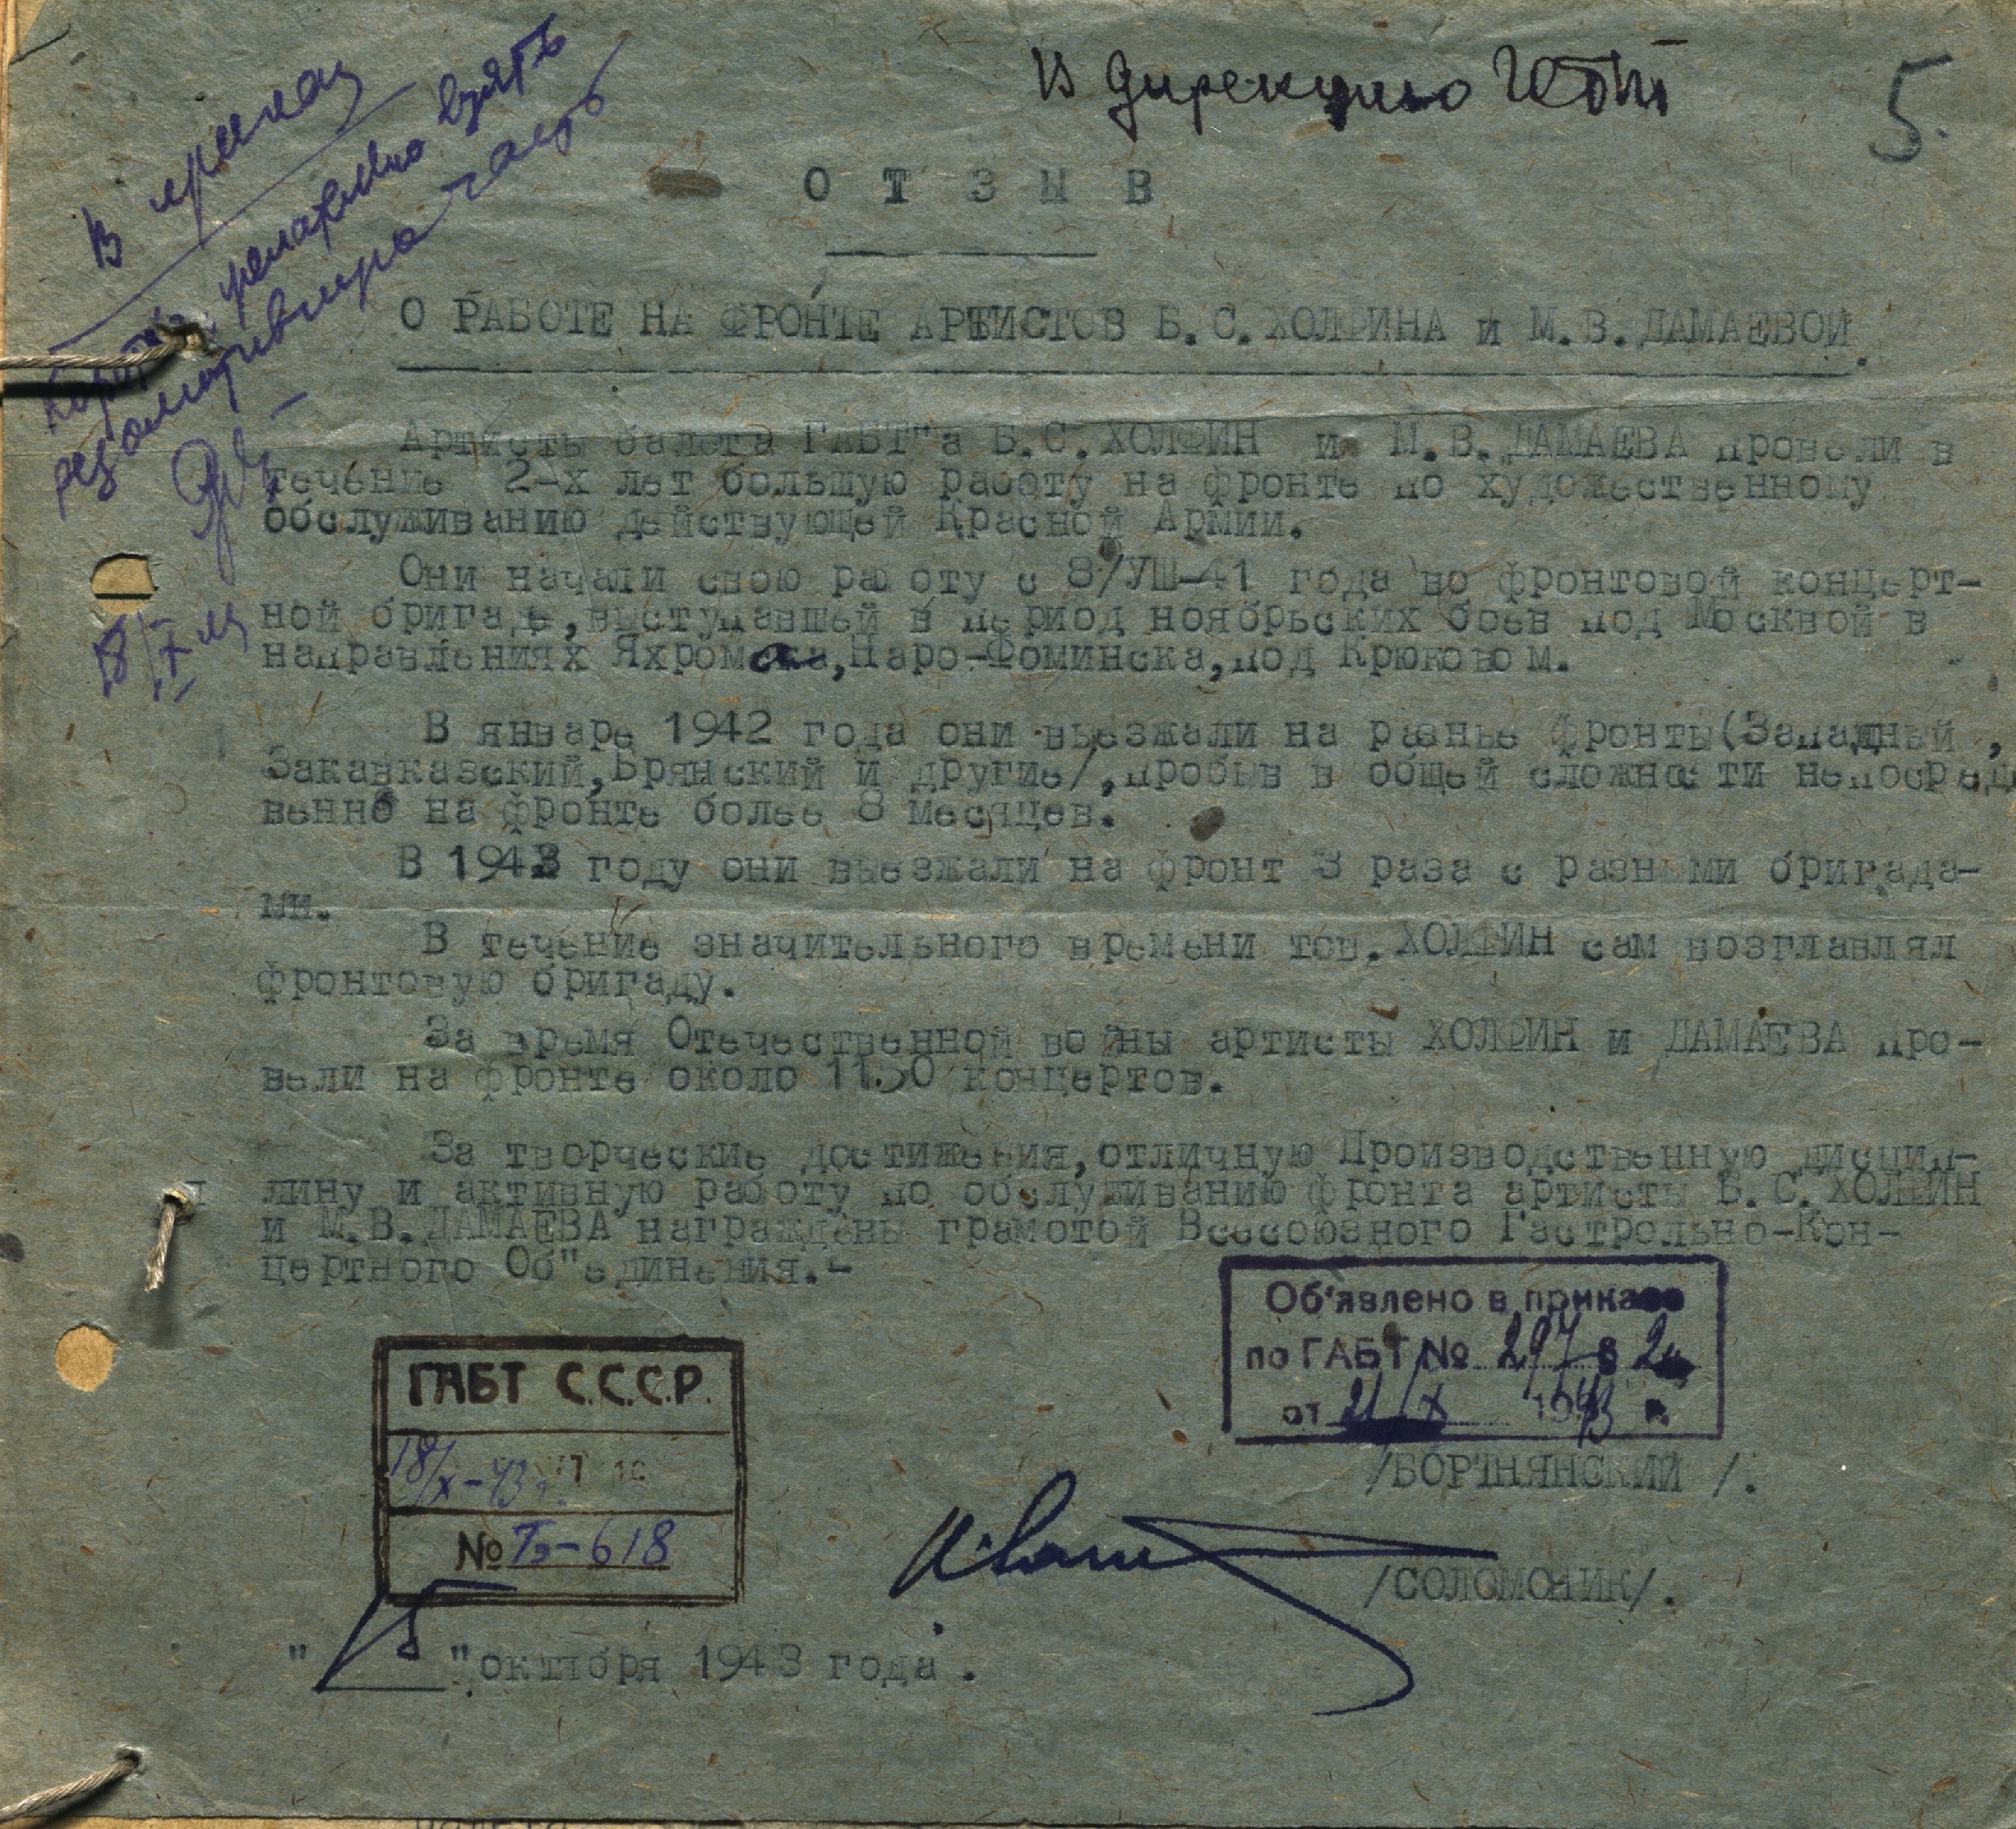 В дирекцию ГАБТ
5.
В приказ
взять
часть
18/X 43
О Т З Ы В
О РАБОТЕ НА ФРОНТЕ АРТИСТОВ Б.С.ХОЛФИНА и М.В.ДАМАЕВОЙ.
Артисты балета ГАБТ"а Б.С.ХОЛФИН и М.В.ДАМАЕВА провели в
течение 2-х лет большую работу на фронте по художественному
обслуживанию действующей Красной Армии.
Они начали свою работу с 8/УШ-41 года во фронтовой концерт-
ной бригаде,выступавшей в период ноябрьских боев под Москвой в
направлениях Яхромска,Наро-Фоминска,под Крюковом.
В январе 1942 года они выезжали на разные фронты(Западный ,
Закавказский,Брянский и другие/,пробыв в общей сложности непосред
венно на фронте более 8 месяцев.
В 1943 году они выезжали на фронт 3 раза с разными бригада-
ми.
В течение значительного времени тов.ХОЛФИН сам возглавлял
фронтовую бригаду.
За время Отечественной войны артисты ХОЛФИН и ДАМАЕВА про-
вели на фронте около 1150 концертов.
За творческие достижения,отличную Производственную дисцип-
лину и активную работу по обслуживанию фронта артисты Б.С.ХОЛФИН
и М.В.ДАМАЕВА награждены грамотой Всесоюзного Гастрольно-Кон-
цертного Об"единения.-
Об'явлено в приказе
по ГАБТ № 297 § 2
от 21/X 1943 г.
ГАБТ С.С.С.Р.
18/X-43 г.
№ Тэ-618
/БОРТНЯНСКИЙ /.
/СОЛОМОНИК/.
" "октября 1943 года.